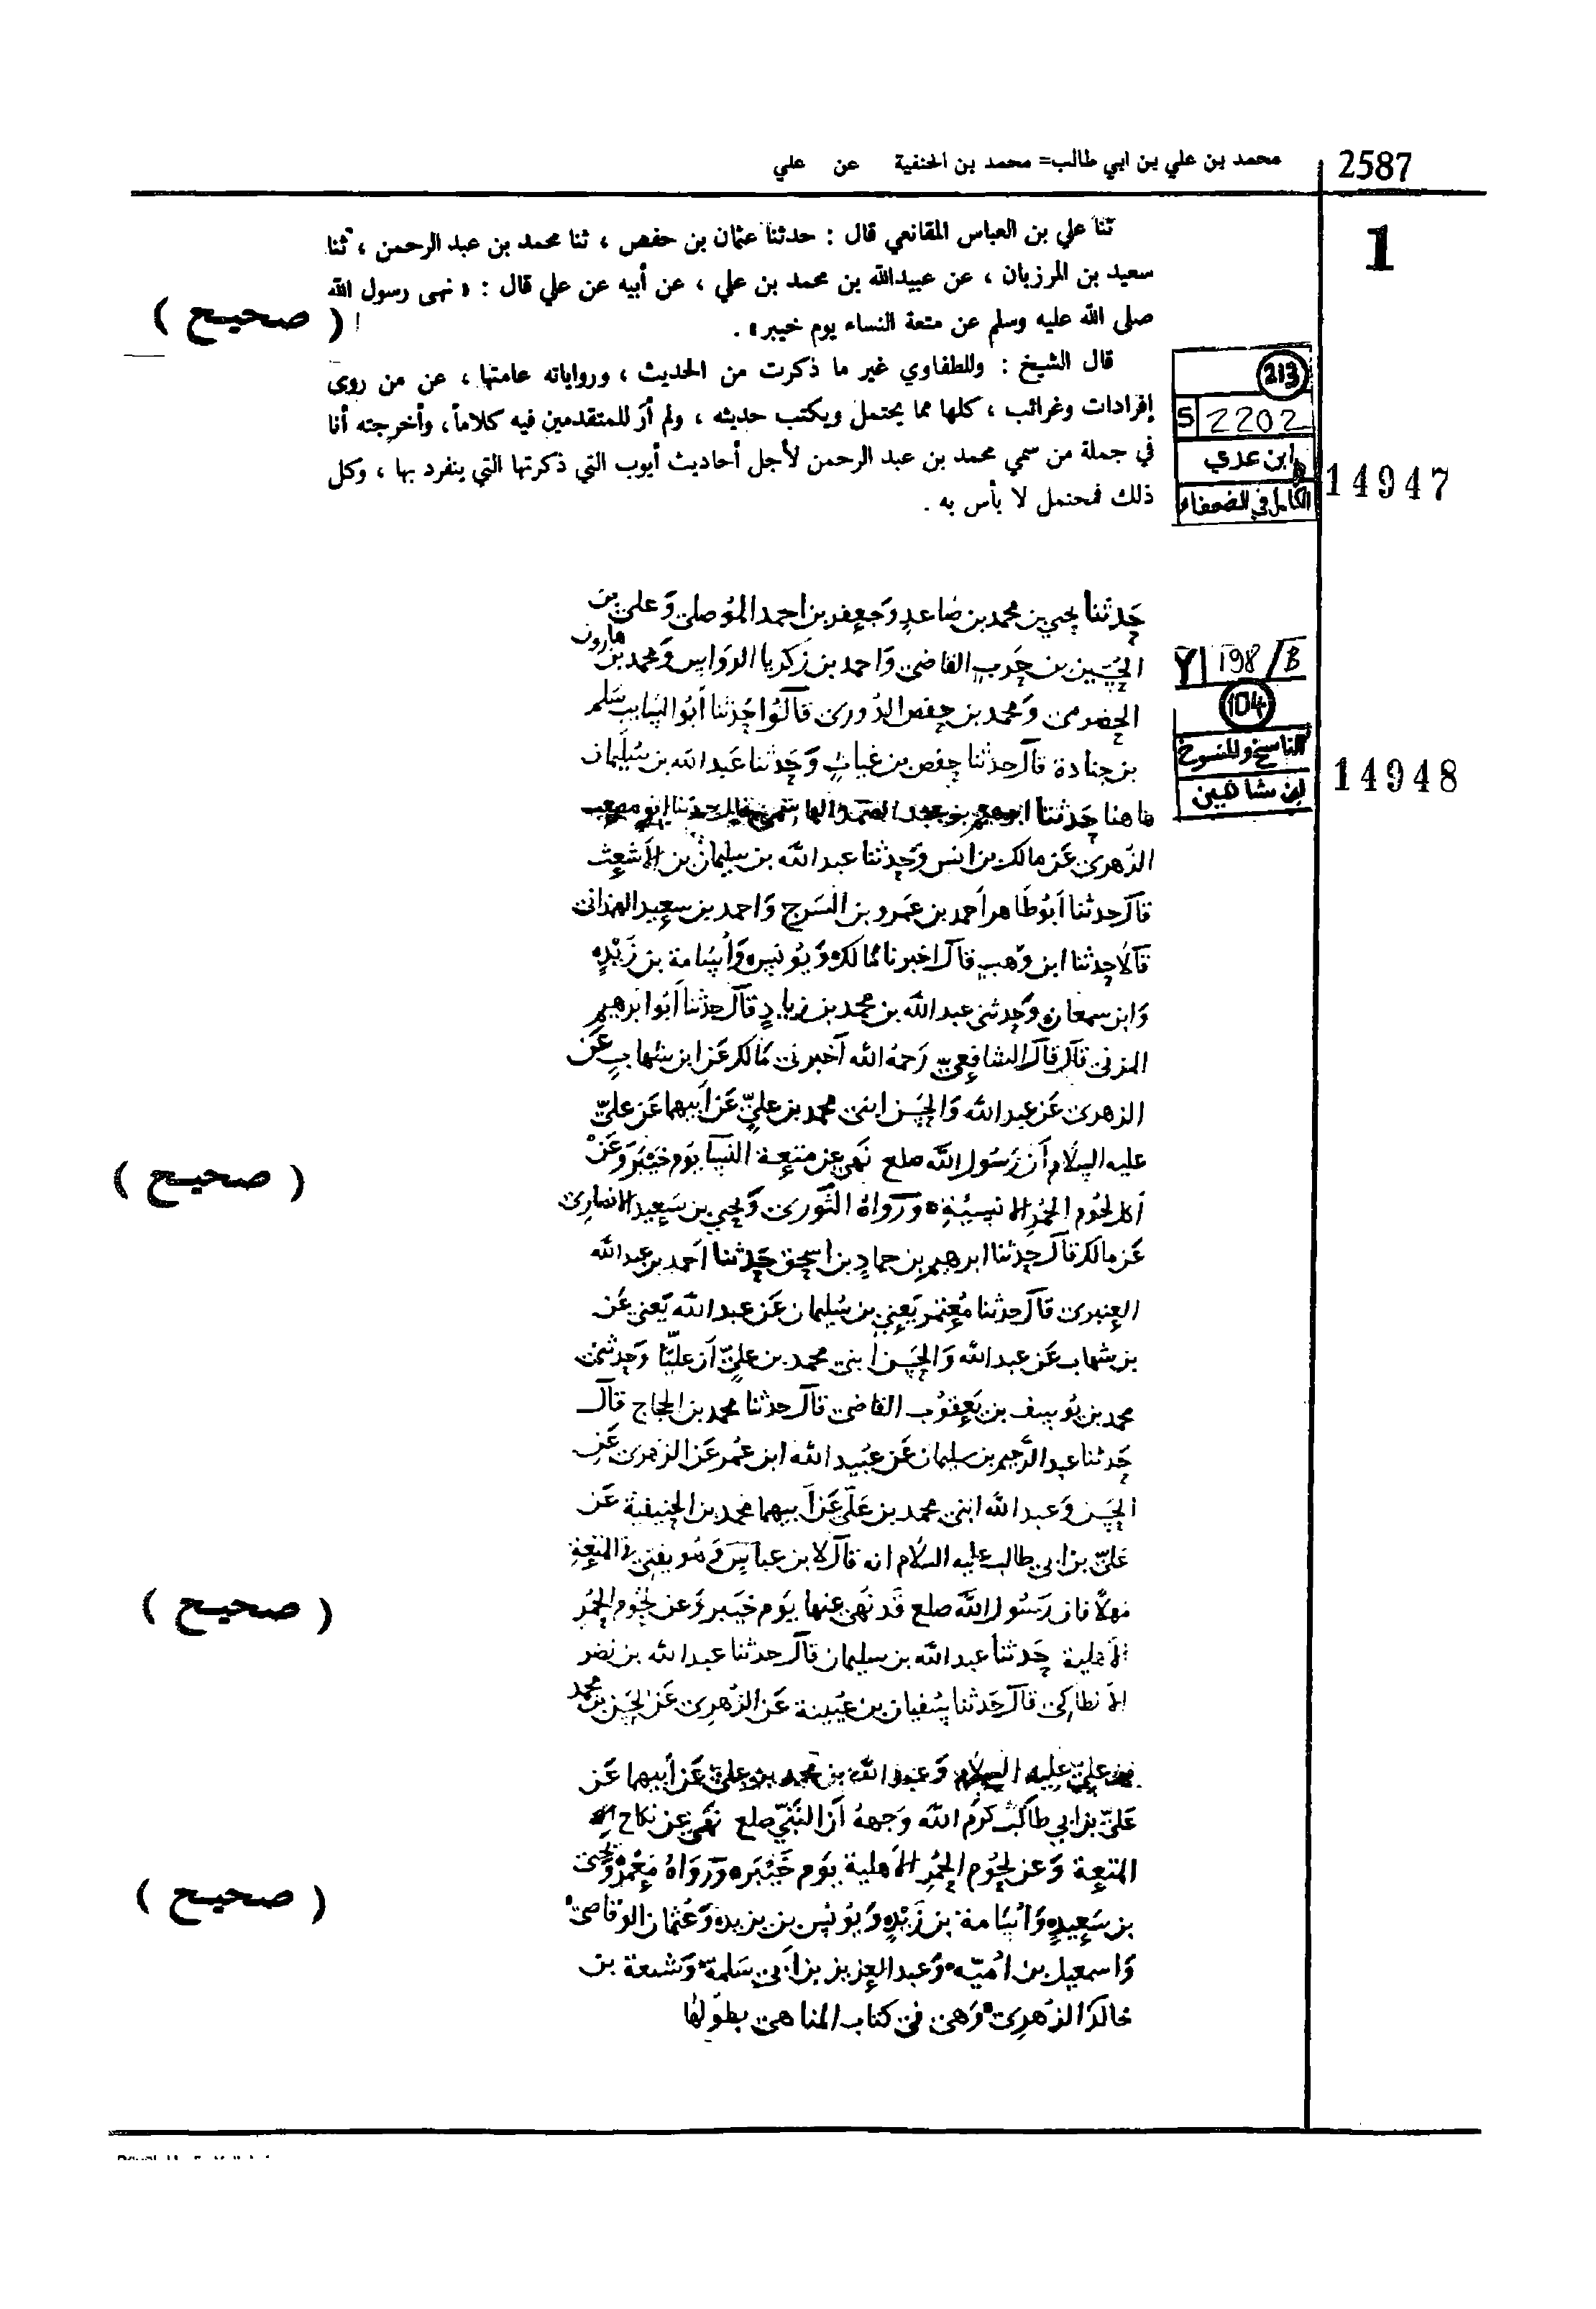 محمد بن علي بن ابي طالب= محمد بن الحنفية عن علي
2587
1
ثنا علي بن العباس المقانعي قال : حدثنا عثمان بن حفص ، ثنا محمد بن عبد الرحمن ، ثنا
سعيد بن المرزبان ، عن عبيدالله بن محمد بن علي ، عن أبيه عن علي قال : « نهى رسول الله
صلى الله عليه وسلم عن متعة النساء يوم خيبر » .
( صحيح )
قال الشيخ : وللطفاوي غير ما ذكرت من الحديث ، ورواياته عامتها ، عن من روى
إفرادات وغرائب ، كلها مما يحتمل ويكتب حديثه ، ولم أر للمتقدمين فيه كلاماً ، وأخرجته أنا
في جملة من سمي محمد بن عبد الرحمن لأجل أحاديث أيوب التي ذكرتها التي ينفرد بها ، وكل
ذلك فمحتمل لا بأس به .
213
5 2202
ابن عدي
الكامل في الضعفاء
14947
حدثنا يحيي بن محمد بن صاعد وجعفر بن احمد الموصلي وعلي بن
الحسين بن حرب القاضي واحمد بن زكريا الرواس ومحمد بن هارون
الحضرمي ومحمد بن حفص الدوري قالوا حدثنا أبو السايب سلم
بن جنادة قال حدثنا حفص بن غياث وحدثنا عبد الله بن سليمان
198/B
104
الناسخ والمنسوخ
ابن شاهين
14948
حدثنا ابرهيم بن عبد الصمد الهاشمي قال حدثنا ابو مصعب
الزهري عن مالك بن انس وحدثنا عبد الله بن سليمان بن الأشعث
قال حدثنا أبو طاهر أحمد بن عمرو بن السرح واحمد بن سعيد الهمداني
قالا حدثنا ابن وهب قال اخبرنا مالك ويونس وأسامة بن زيد
وابن سمعان وحدثني عبد الله بن محمد بن زياد قال حدثنا أبو ابرهيم
المزني قال قال الشافعي رحمه الله أخبرني مالك عن ابن شهاب عن
الزهري عن عبد الله والحسن ابني محمد بن علي عن أبيهما عن علي
عليه السلام أن رسول الله صلع نهى عن متعة النسا يوم خيبر وعن
أكل لحوم الحمر الانسية ورواه الثوري ويحيي بن سعيد الانصاري
( صحيح )
عن مالك قال حدثنا ابرهيم بن حماد بن اسحق حدثنا أحمد بن عبد الله
العنبري قال حدثنا معتمر يعني بن سليمان عن عبد الله يعني عن
بن شهاب عن عبد الله والحسن ابني محمد بن علي أن عليا وحدثني
محمد بن يوسف بن يعقوب القاضي قال حدثنا محمد بن الحجاج قال
حدثنا عبد الرحيم بن سليمان عن عبيد الله ابن عمر عن الزهري عن
الحسن وعبد الله ابني محمد بن علي عن أبيهما محمد بن الحنيفية عن
علي بن ابي طالب عليه السلام انه قال لابن عباس وهو يفتي في المتعة
مهلا فان رسول الله صلع قد نهى عنها يوم خيبر وعن لحوم الحمر
( صحيح )
الأهلية حدثنا عبد الله بن سليمان قال حدثنا عبد الله بن نصر
الأنطاكي قال حدثنا سفيان بن عيينة عن الزهري عن الحسن بن محمد
بن علي عليه السلام وعبد الله بن محمد بن علي عن أبيهما عن
علي بن ابي طالب كرم الله وجهه أن النبي صلع نهى عن نكاح
المتعة وعن لحوم الحمر الأهلية يوم خيبر ورواه معمر ويحيى
( صحيح )
بن سعيد وأسامة بن زيد ويونس بن يزيد وعثمان الوقاصي
واسمعيل بن أمية وعبد العزيز بن أبي سلمة وشعبة بن
خالد الزهري وهي في كتاب المناهي بطولها